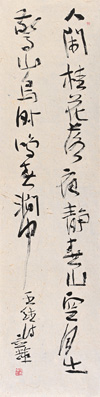 人閑桂花落夜靜春山空月出
驚山鳥時鳴春澗中 王維詩